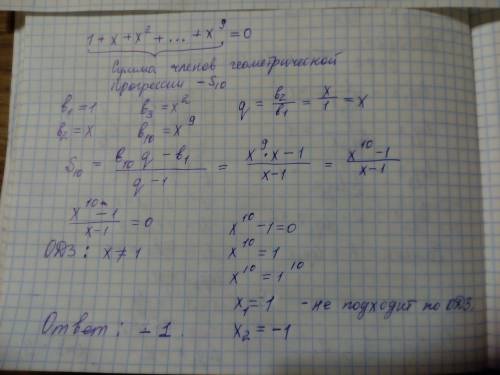 1 + x + x² + ... + x⁹ = 0
Сумма членов геометрической
прогрессии – S₁₀
b₁ = 1 b₃ = x² q = b₂/b₁ = x/1 = x
b₂ = x b₁₀ = x⁹
S₁₀ = (b₁₀ q – b₁)/(q – 1) = (x⁹ · x – 1)/(x – 1) = (x¹⁰ – 1)/(x – 1)
(x¹⁰ – 1)/(x – 1) = 0
ОДЗ: x ≠ 1
x¹⁰ – 1 = 0
x¹⁰ = 1
x¹⁰ = 1¹⁰
x₁ = 1 – не подходит по ОДЗ.
x₂ = –1
Ответ: – 1.